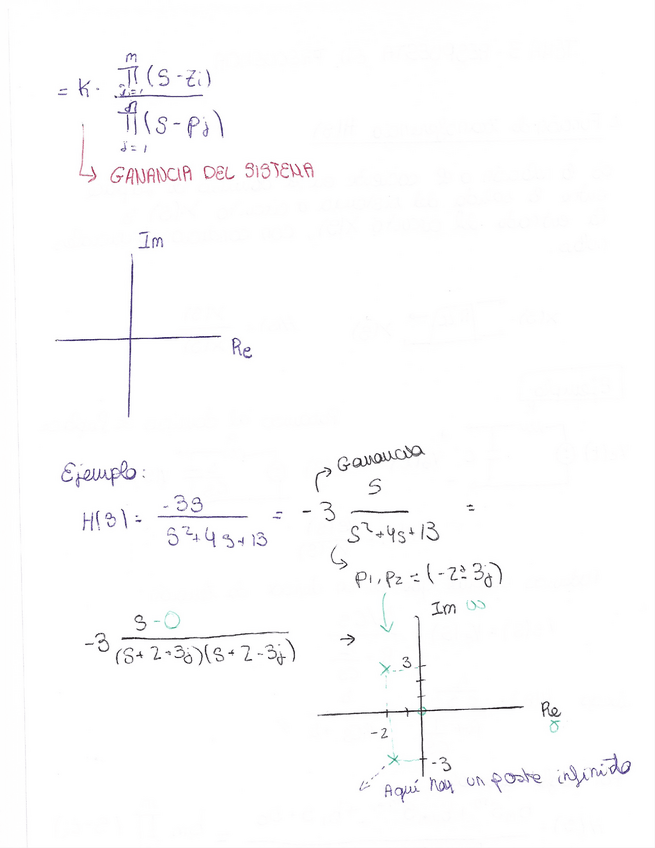 = K · \frac{\prod_{i=1}^{m} (S - Zi)}{\prod_{j=1}^{n} (S - Pj)}
↳ GANANCIA DEL SISTEMA
Im
Re
Ejemplo:
Ganancia
H(s) = \frac{-3s}{s^2 + 4s + 13} = -3 \frac{s}{s^2 + 4s + 13} =
P1, P2 = (-2 ± 3j)
-3 \frac{s - 0}{(s + 2 + 3j)(s + 2 - 3j)} →
Im ω
3
Re
σ
-2
-3
Aquí hay un poste infinito